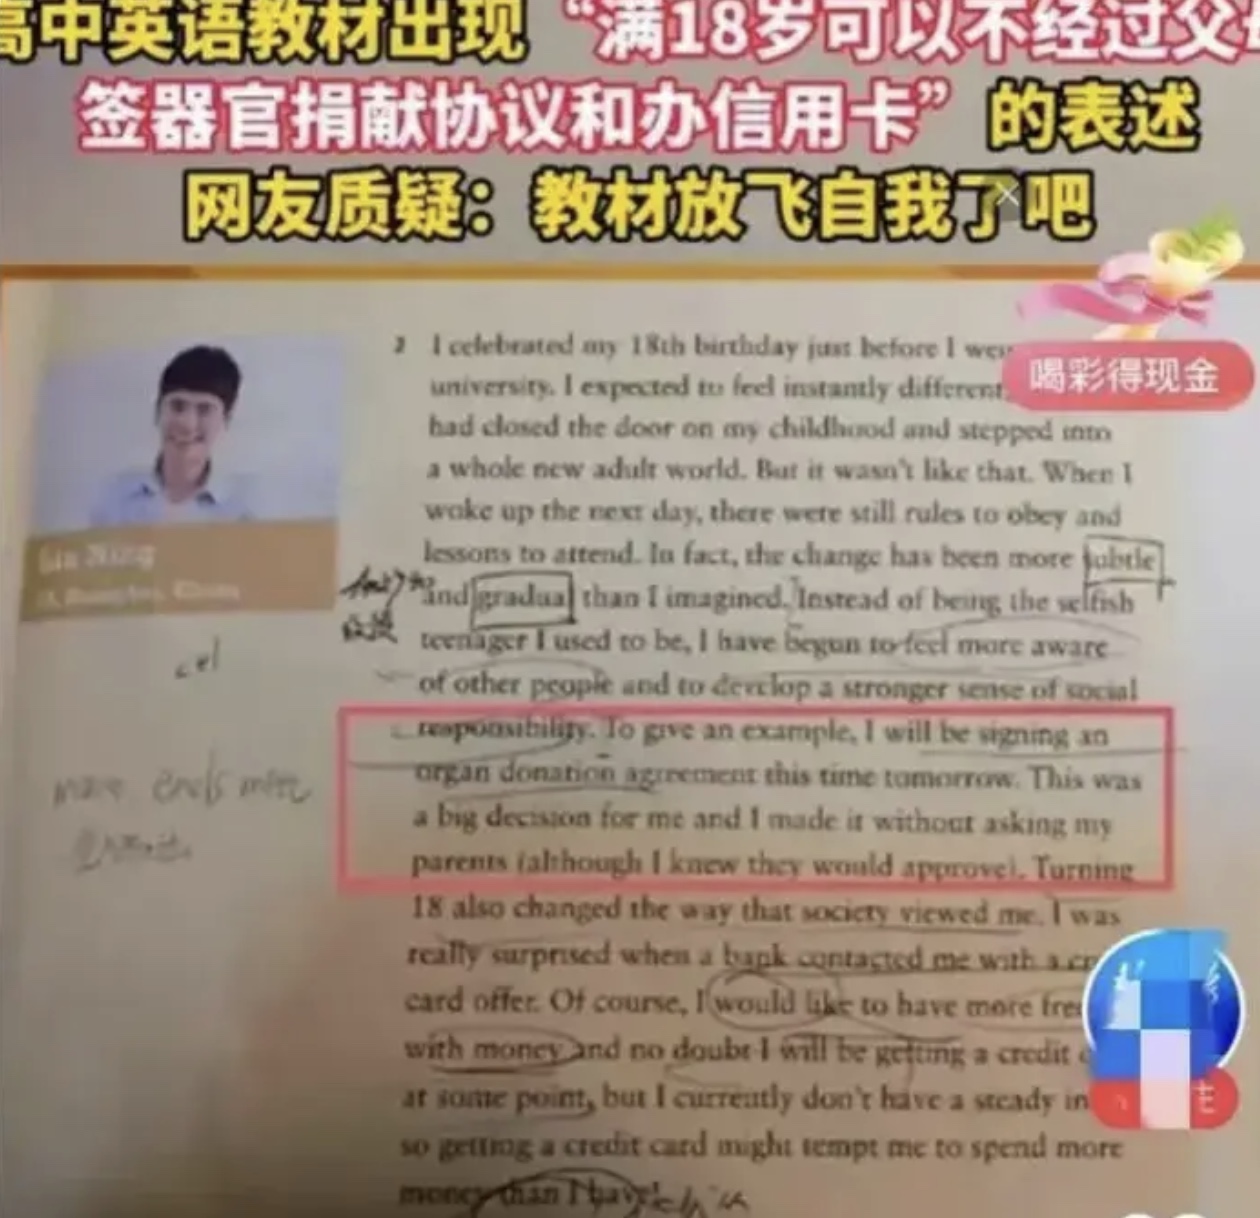 高中英语教材出现“满18岁可以不经过父母
签器官捐献协议和办信用卡”的表述
网友质疑：教材放飞自我了吧
喝彩得现金
2 I celebrated my 18th birthday just before I
university. I expected to feel instantly different,
had closed the door on my childhood and stepped into
a whole new adult world. But it wasn't like that. When I
woke up the next day, there were still rules to obey and
lessons to attend. In fact, the change has been more subtle
and gradual than I imagined. Instead of being the selfish
teenager I used to be, I have begun to feel more aware
of other people and to develop a stronger sense of social
responsibility. To give an example, I will be signing an
organ donation agreement this time tomorrow. This was
a big decision for me and I made it without asking my
parents (although I knew they would approve). Turning
18 also changed the way that society viewed me. I was
really surprised when a bank contacted me with a
card offer. Of course, I would like to have more
with money and no doubt I will be getting a credit
at some point, but I currently don't have a steady
so getting a credit card might tempt me to spend more
money than I have!
China
ends meet